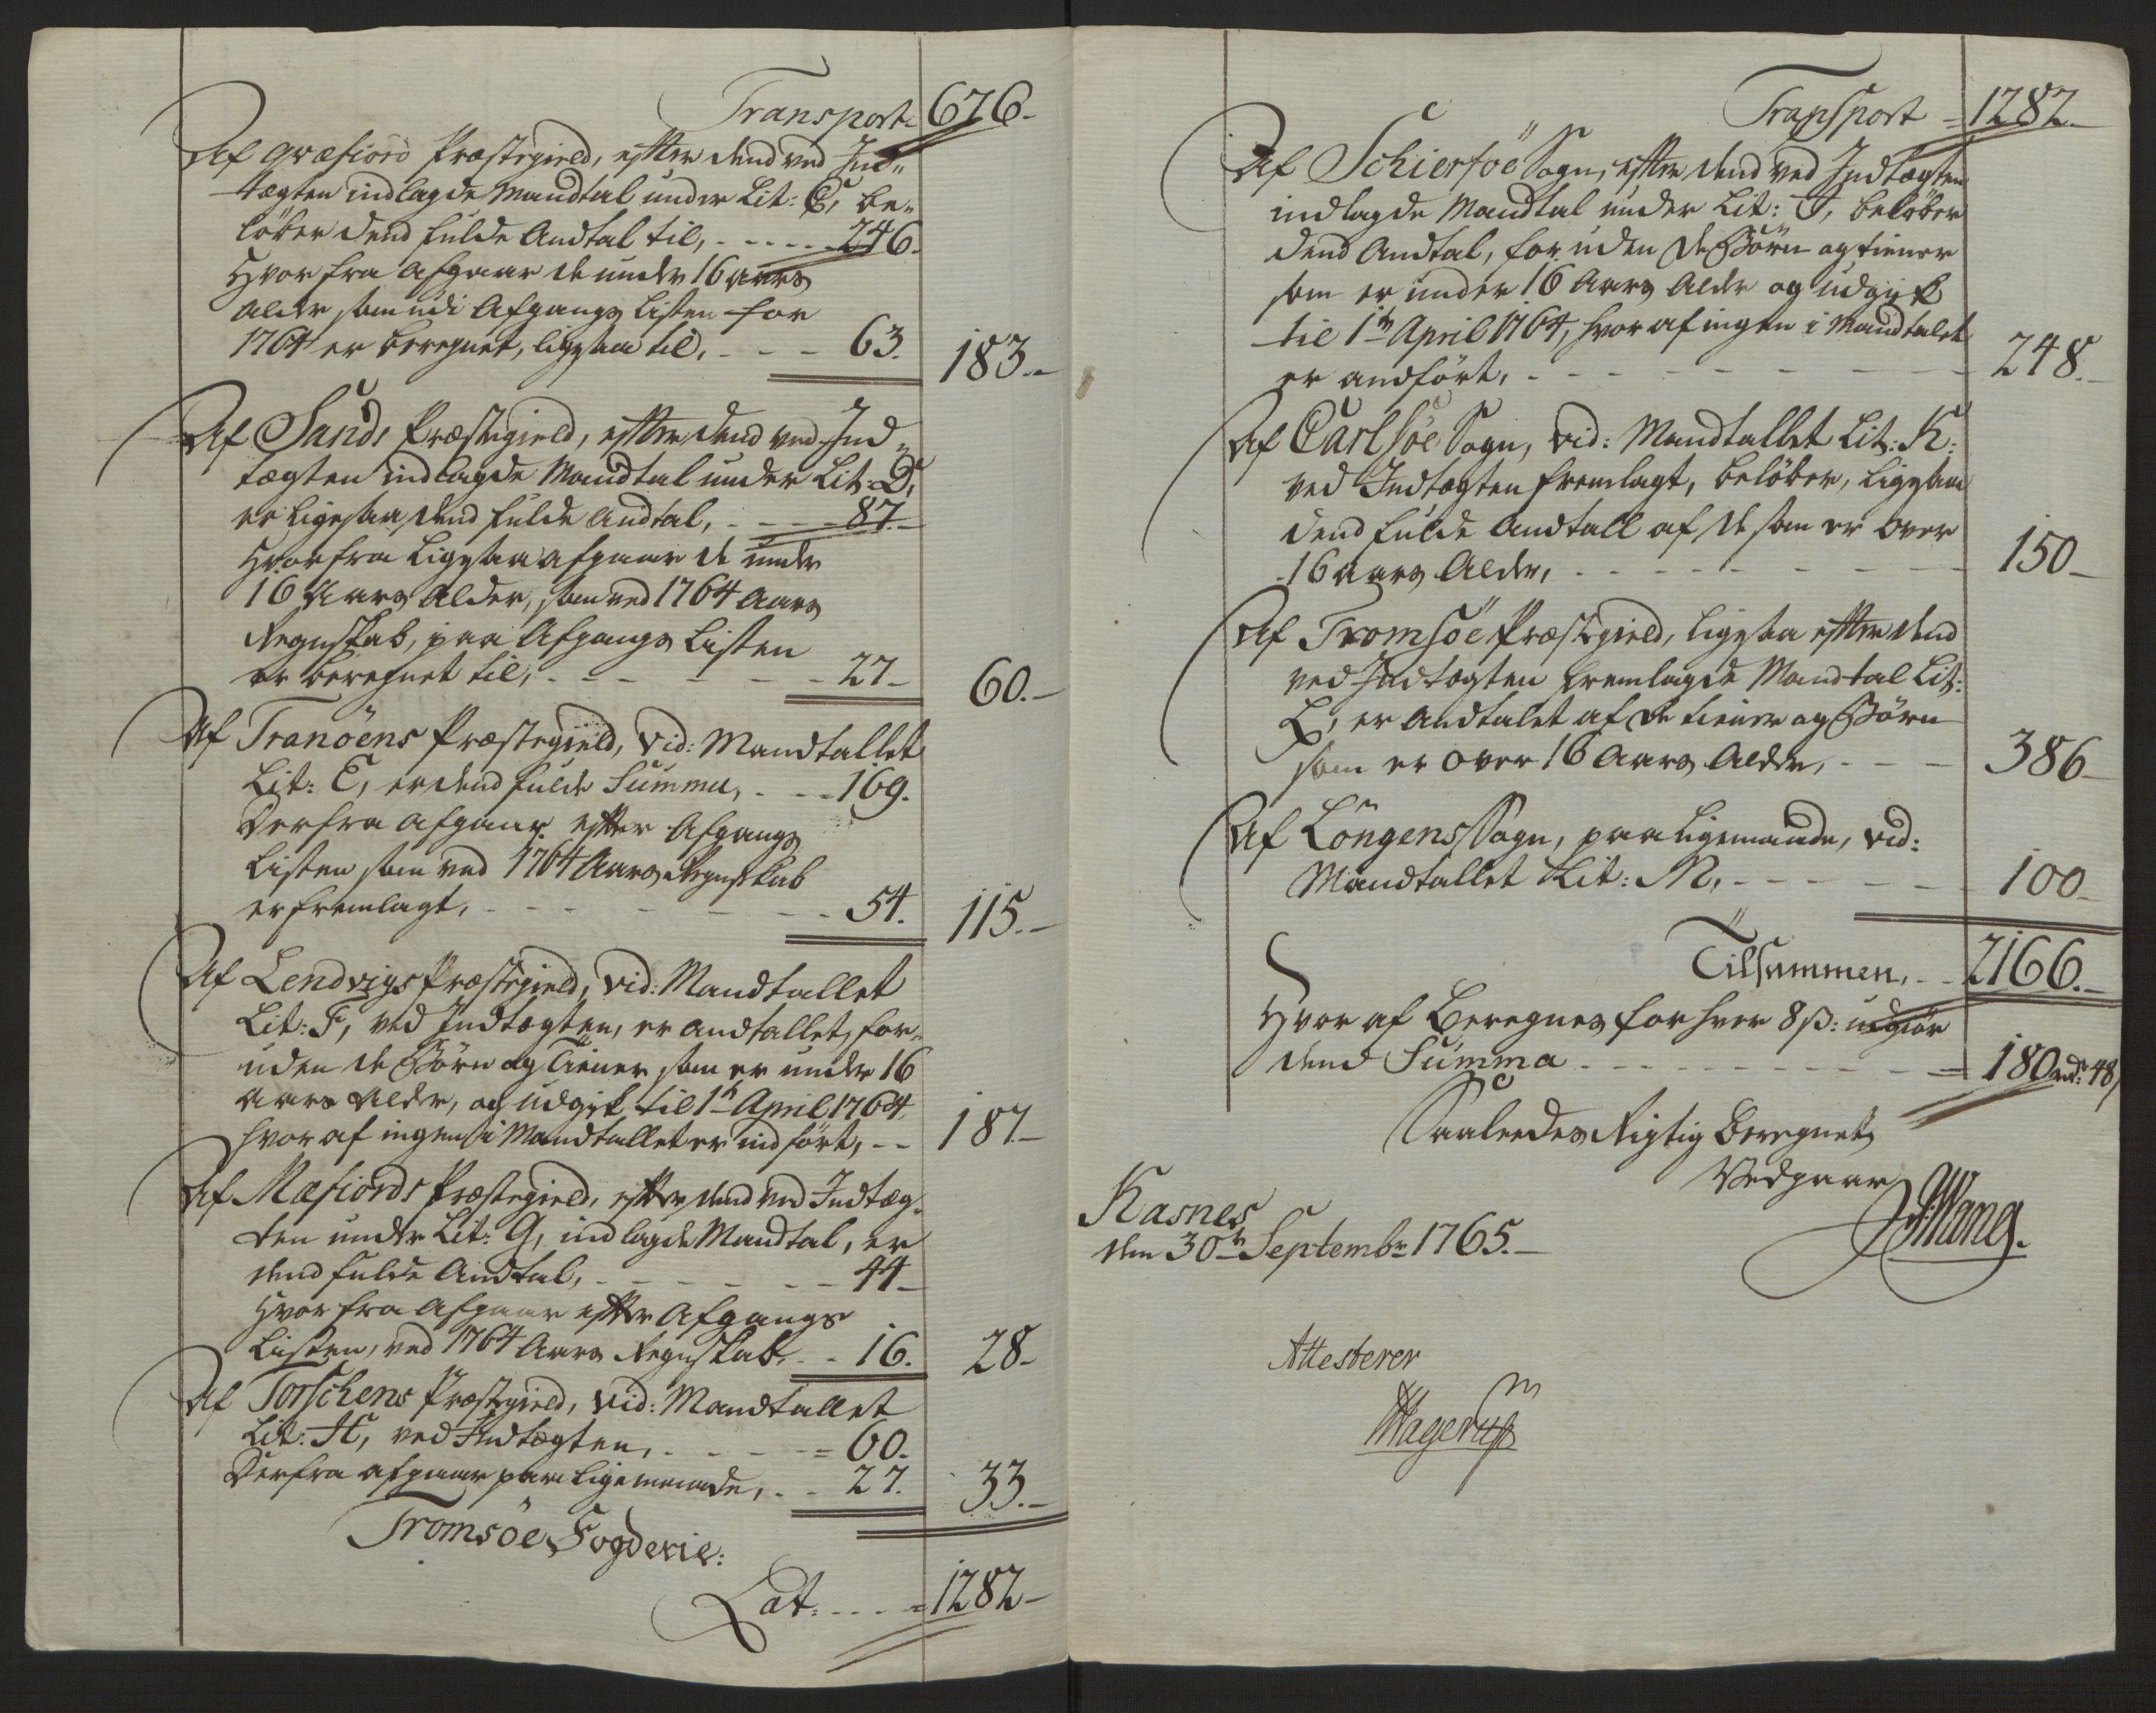 Transport 676.-
Af Qvæfiord Præstegield, efter dend ved Ind„
tægten indlagde Mandtal under Lit: C, be„
löber dend fulde Andtal til, - - - - - 246.
Hvorfra afgaar de under 16 aars
alder som udi Afgangs Listen for
1764 er beregnet, ligesaa til, - - - 63. 183.-
Af Sands Præstegield, efter dend ved Ind„
tægten indlagde Mandtal under Lit: D,
er ligesaa dend fulde andtal, - - - - 87.-
Hvorfra Ligesaa afgaar de under
16 Aars Alder, som ved 1764 Aars
Regnskab, paa Afgangs Listen
er beregnet til, - - - - - - 27- 60.-
Af Tranöens Præstegield, vid: Mandtallet
Lit: E, er dend fulde Summa, - - - 169.
Derfra afgaar efter Afgangs
Listen som ved 1764 Aars Regnskab
er fremlagt, - - - - - - - 54. 115.-
Af Lendvigs Præstegield, vid: Mandtallet
Lit: F, ved Indtægten, er andtallet, for„
uden de Börn og Tiener som er under 16
aars alder, og udgik til 1te April 1764
hvoraf ingen i Mandtallet er indfört, - - 187.-
Af Mæfiords Præstegield, efter dend ved Indtæg„
ten under Lit: G, indlagde Mandtal, er
dend fulde Andtal, - - - - - - 44-
Hvorfra Afgaar efter Afgangs
Listen, ved 1764 Aars Regnskab, - - 16. 28-
Af Torschens Præstegield, vid: Mandtallet
Lit: H, ved Indtægten, - - - - - 60.
Derfra afgaar paa ligemaade, - - 27. 33.-
Tromsöe Fogderie:
Lat: - - - - 1282-
Transport - 1282.-
Af Schiersöe Sogn, efter dend ved Indtægten
indlagde Mandtal under Lit: I, belöber
dend Andtal, foruden de Börn og tiener
som er under 16 Aars Alder og udgik
til 1te April 1764, hvoraf ingen i Mandtalet
er andfört, - - - - - - - - 248.-
Af Carlsöe Sogn, vid: Mandtallet Lit: K:
ved Indtægten fremlagt, belöber, ligesaa
dend fulde Andtall af de som er over
16 aars Alder, - - - - - - - - 150-
Af Tromsöe Præstegield, ligesaa efter dend
ved Indtægten fremlagde Mandtal Lit:
L, er Andtalet af de tiener og Börn
som er over 16 Aars Alder, - - - 386-
Af Löngens Sogn, paa ligemaade, vid:
Mandtallet Lit: M, - - - - - - 100-
Tilsammen, - - 2166.-
Hvoraf Beregnes for hver 8 ß: udgiör
dend Summa - - - - - - - - 180 rdr: 48,
Saaledes Rigtig Beregnet,
Vedgaar
Kasnes
den 30te Septembr 1765.- Wang.
Attesterer
Hagerup